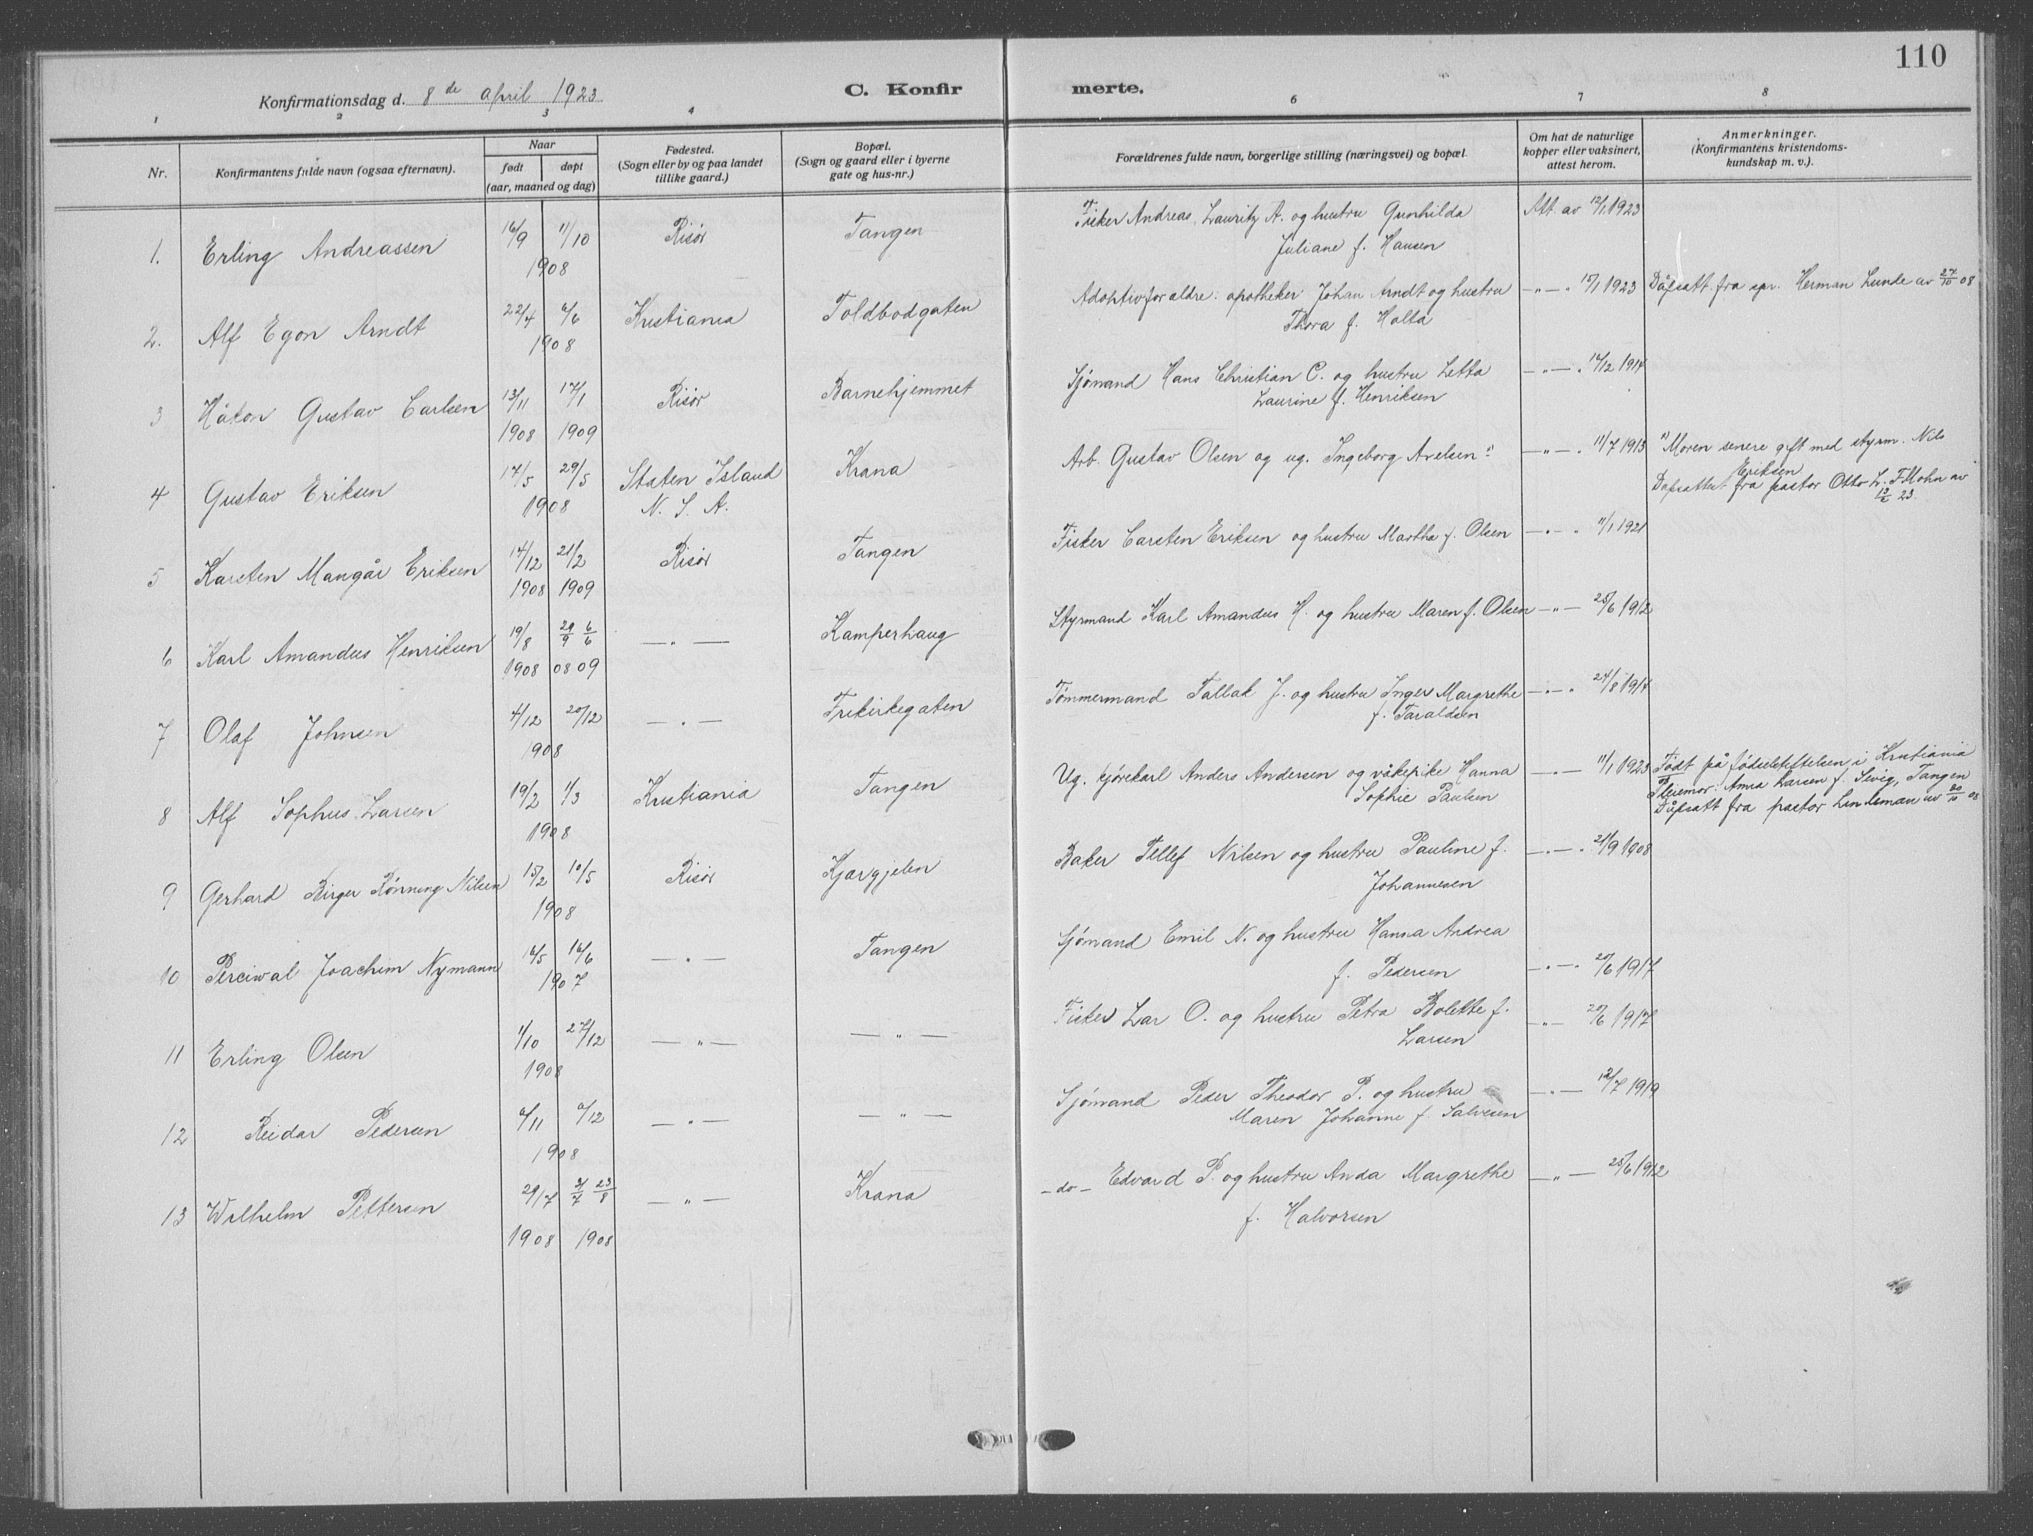 110
Konfirmationsdag d. 8de april 1923
C. Konfirmerte.
1 2 3 4 6 7 8
Nr.
Konfirmantens fulde navn (ogsaa efternavn).
Naar
født døpt
(aar, maaned og dag)
Fødested.
(Sogn eller by og paa landet
tillike gaard.)
Bopæl.
(Sogn og gaard eller i byerne
gate og hus-nr.)
Forældrenes fulde navn, borgerlige stilling (næringsvei) og bopæl.
Om hat de naturlige
kopper eller vaksinert,
attest herom.
Anmerkninger.
(Konfirmantens kristendoms-
kundskap m. v.).
1. Erling Andreassen 16/9 11/10 Risør Tangen Fisker Andreas Lauritz A. og hustru Gunhilda Att. av 12/1 1923
1908 Juliane f. Hansen
2. Alf Egon Arndt 22/4 6/6 Kristiania Toldbodgaten Adoptivforældre: apotheker Johan Arndt og hustru —"— 15/1 1923 Dåpsatt. fra spr. Herman Lunde av 27/10 08
1908 Thora f. Holta
3 Håkon Gustav Carlsen 13/11 17/1 Risør Barnehjemmet Sjømand Hans Christian C. og hustru Letta —"— 14/12 1914
1908 1909 Laurine f. Henriksen
4 Gustav Eriksen 17/5 29/5 Staten Island Krana Arb. Gustav Olsen og ug. Ingeborg Axelsen —"— 11/7 1913 Moren senere gift med styrm. Nils
Eriksen
1908 N. S. A. Dåpsattest fra pastor Otto L. F. Mohn av
23.
5 Karsten Mangår Eriksen 14/12 21/2 Risør Tangen Fisker Carsten Eriksen og hustru Martha f. Olsen —"— 11/1 1921
1908 1909
6 Karl Amandus Henriksen 19/8 29/9 6/6 —"— Kamperhaug Styrmand Karl Amandus H. og hustru Maren f. Olsen —"— 25/6 1912
1908 08 09
7 Olaf Johnsen 4/12 20/12 —"— Frikirkegaten Tømmermand Tallak J. og hustru Inger Margrethe —"— 24/8 1914
1908 f. Taraldsen
8 Alf Sophus Larsen 19/2 1/3 Kristiania Tangen Ug. kjørekarl Anders Andersen og våkepike Hanna —"— 11/1 1923 Født på fødselstiftelsen i Kristiania
1908 Sophie Paulsen Pleiemor: Anna Larsen f. Sevig, Tangen
Dåpsatt fra pastor Lindeman av 20/10 08
9 Gerhard Birger Rønning Nilsen 15/2 10/5 Risør Kjærgjelen Baker Tellef Nilsen og hustru Pauline f. —"— 21/9 1908
1908 Johannesen
10 Perciwal Joachim Nymann 6/5 16/6 —"— Tangen Sjømand Emil N. og hustru Hanna Andrea
1907 f. Pedersen —"— 20/6 1917
11 Erling Olsen 1/10 27/12 —"— —"— Fisker Lar O. og hustru Petra Bolette f. —"— 20/6 1917
1908 Larsen
12 Reidar Pedersen 6/11 6/12 —"— —"— Sjømand Peder Theodor P. og hustru —"— 12/7 1919
1908 Maren Johanne f. Salvesen
13 Wilhelm Pettersen 29/7 31/7 23/8 —"— Krana —do— Edvard P. og hustru Anda Margrethe —"— 25/6 1912
1908 1908 f. Halvorsen